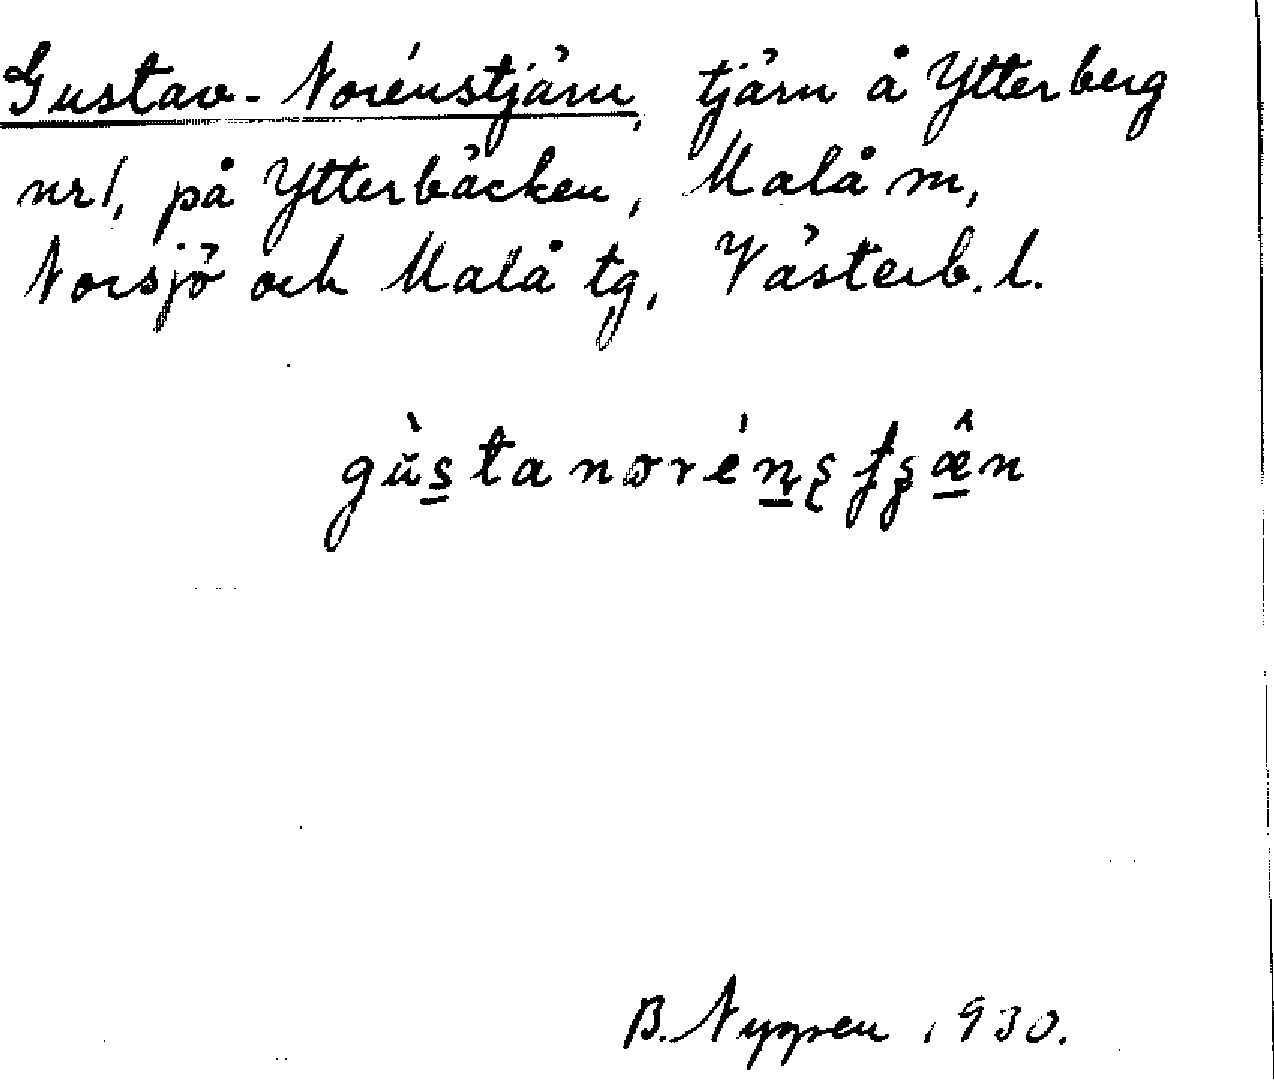 Gustav-Norénstjärn, tjärn å Ytterberg
nr 1, på Ytterbäcken, Malå sn,
Norsjö och Malå tg, Västerb. l.
B. Nygren 1930.